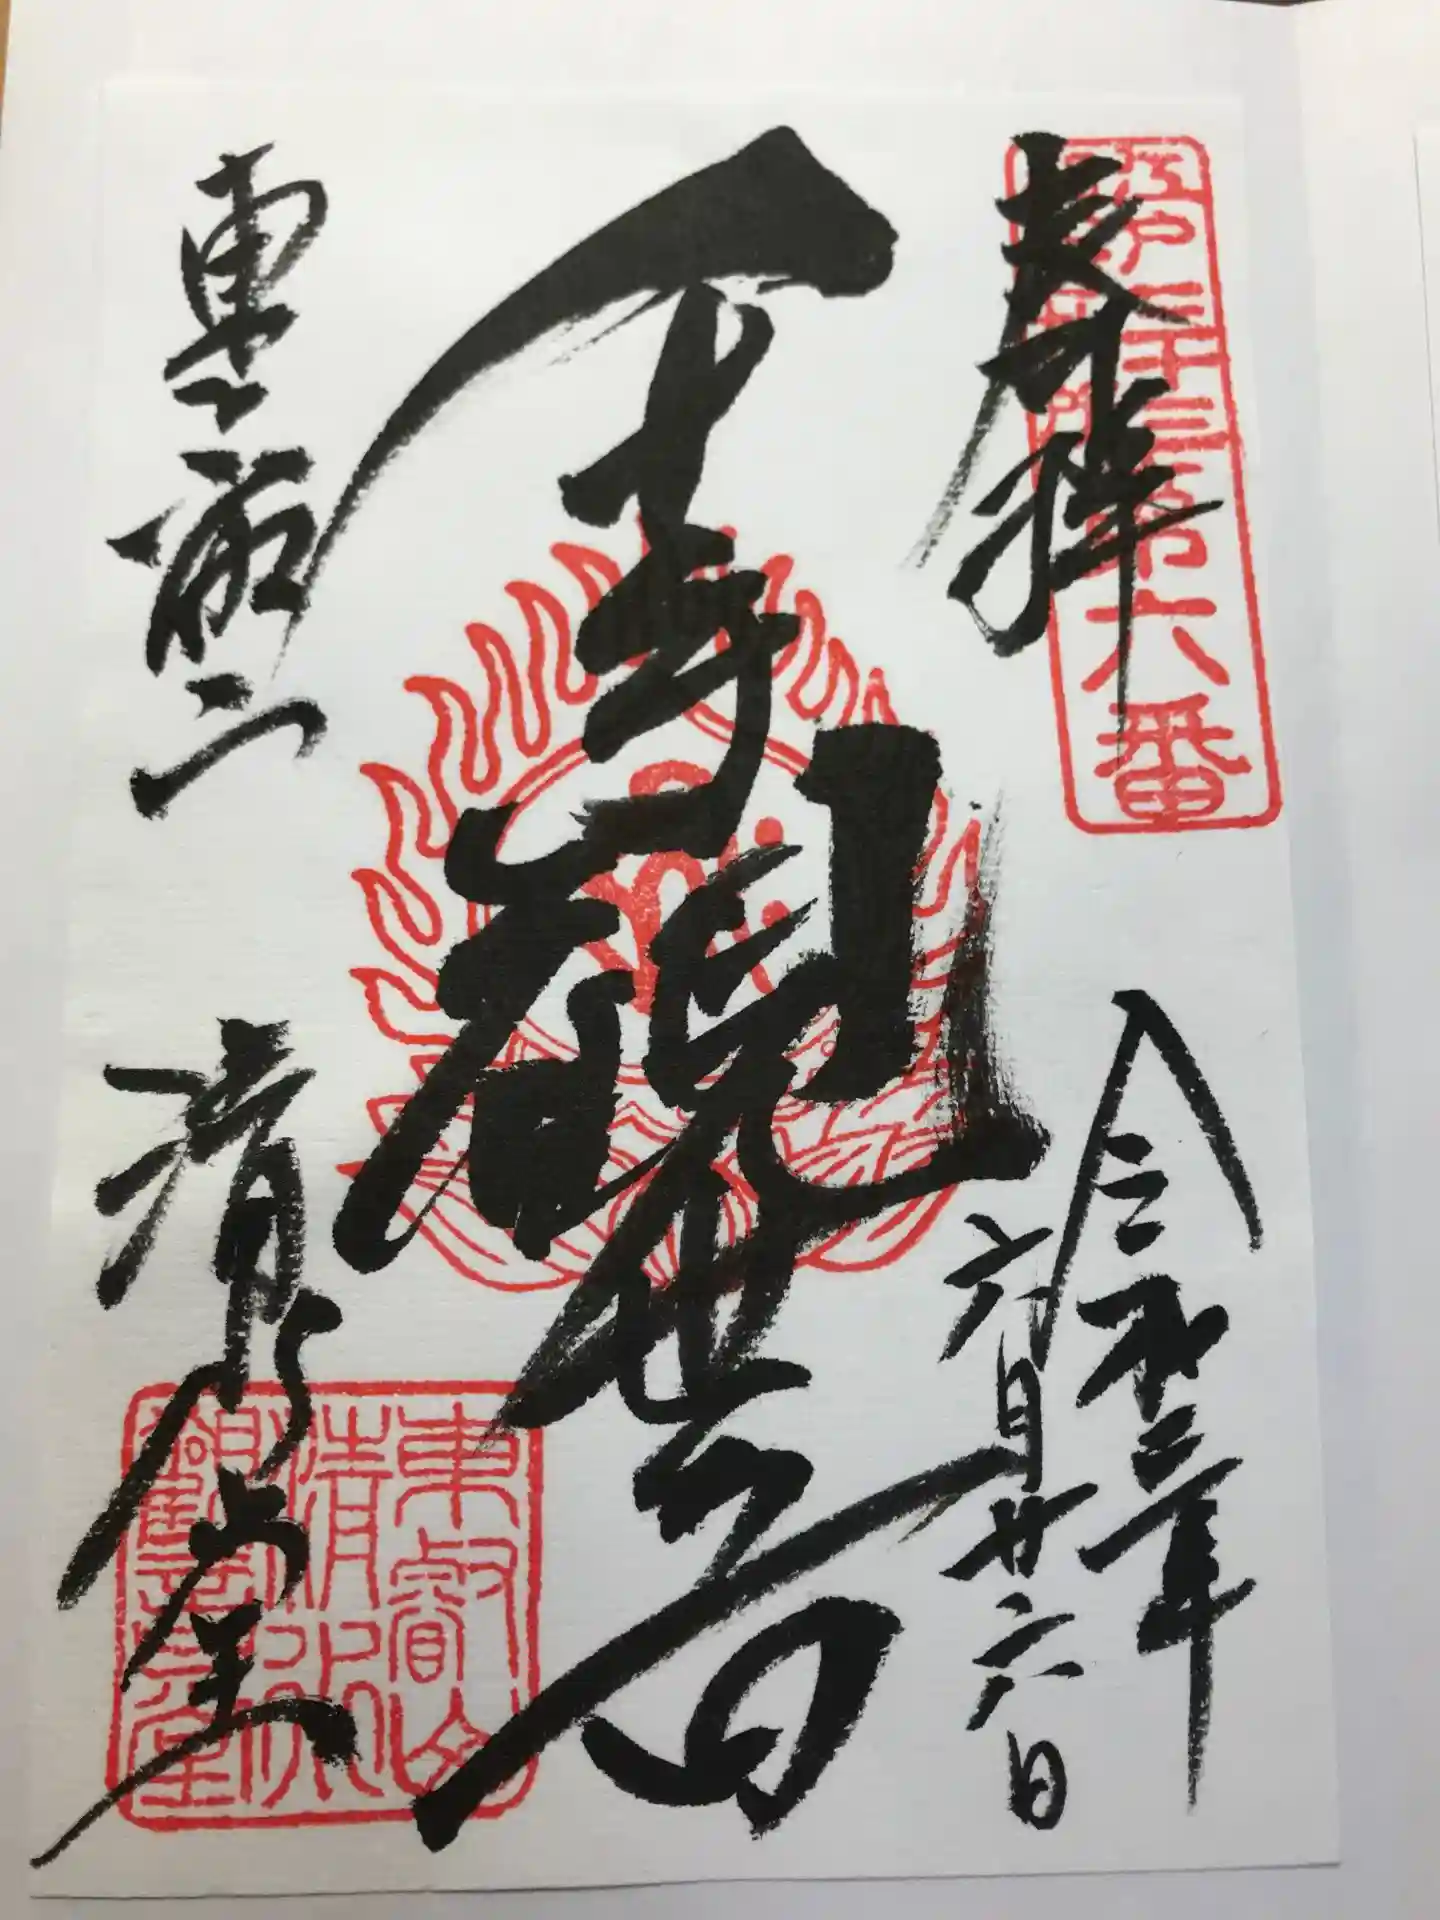 奉拝
江戸三十三
第六番
令和二年
六月廿六日
千手観世音
東叡山
清水堂
東叡山
清水